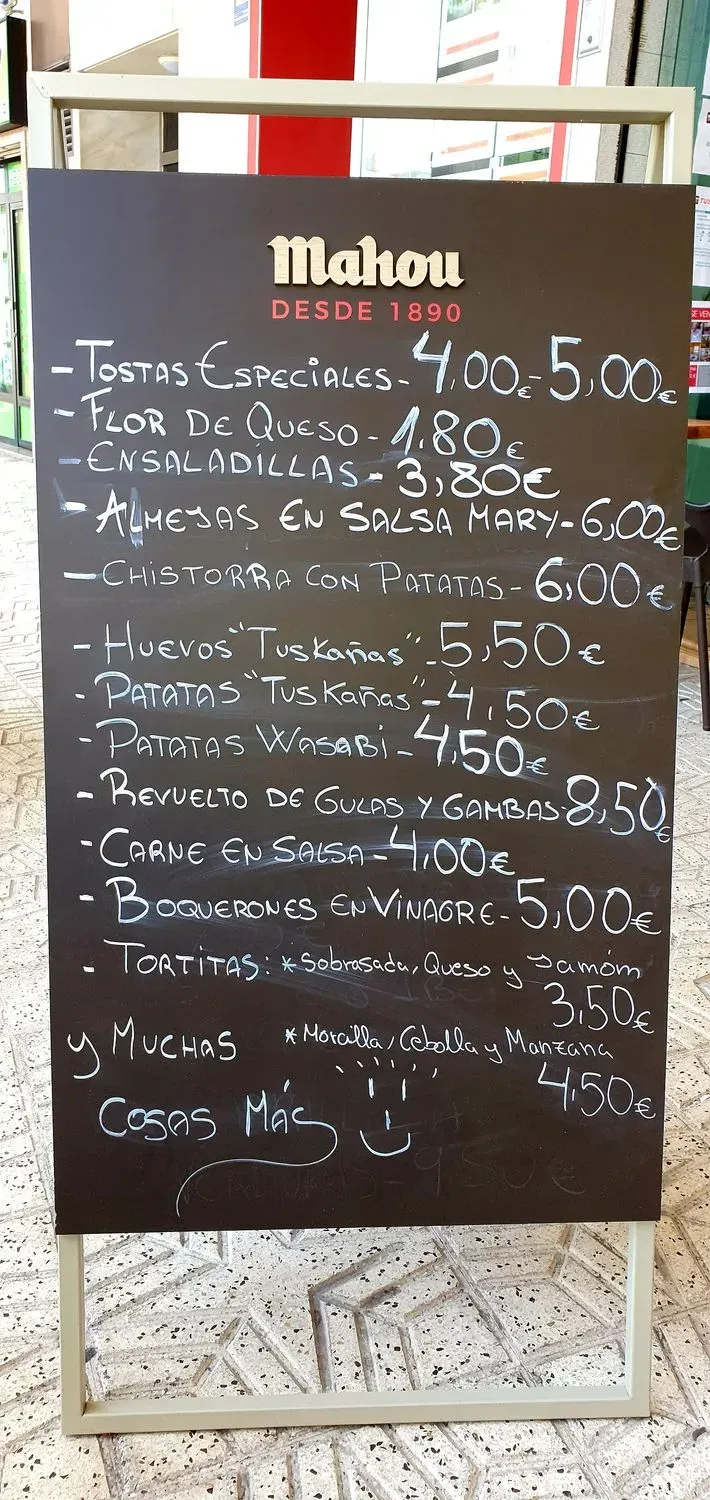 Mahou
DESDE 1890
- TOSTAS ESPECIALES - 4,00€ - 5,00€
- FLOR DE QUESO - 1.80€
- ENSALADILLAS - 3,80€
- ALMEJAS EN SALSA MARY - 6,00€
- CHISTORRA CON PATATAS - 6,00€
- HUEVOS "TusKañas" - 5,50€
- PATATAS "TusKañas" - 4,50€
- PATATAS WASABi - 4,50€
- REVUELTO DE GULAS Y GAMBAS - 8,50€
- CARNE EN SALSA - 4,00€
- BOQUERONES EN VINAGRE - 5,00€
- TORTITAS: * Sobrasada, Queso y Jamóm
3,50€
y MUCHAS * Morcilla, Cebolla y Manzana
4,50€
COSAS MÁS